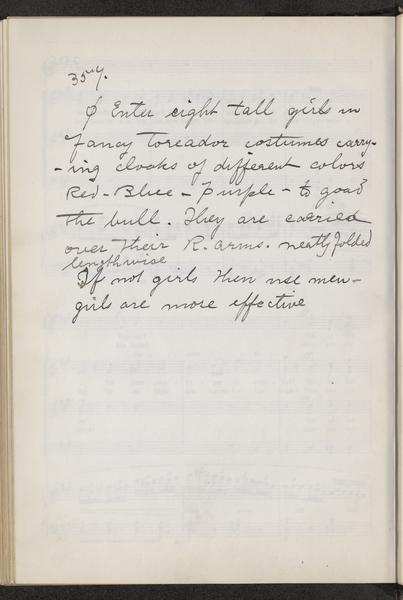 357.
∮ Enter eight tall girls in
fancy Toreador costumes carry-
-ing cloaks of different colors
Red - Blue - Purple - to goad
the bull. They are carried
over their R. arms. neatly folded
lengthwise
If not girls then use men -
girls are more effective